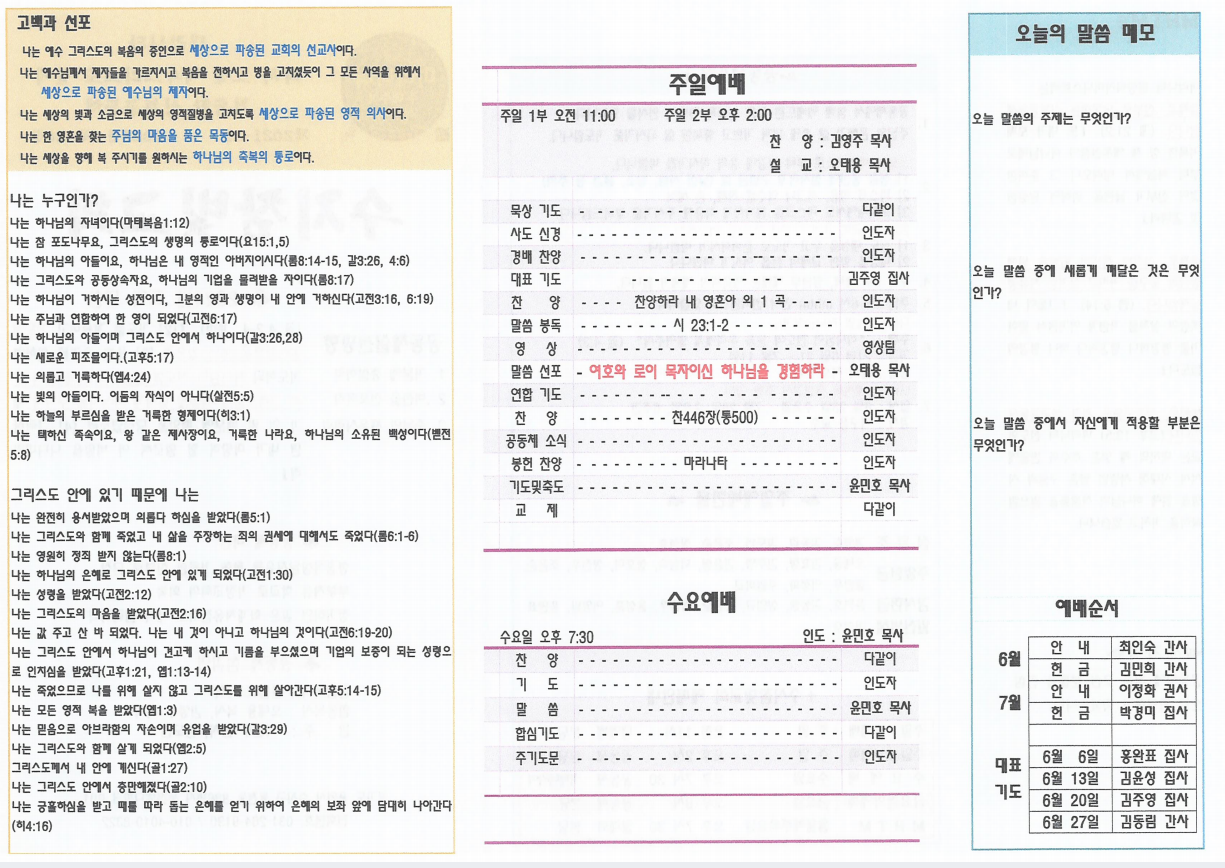 고백과 선포
나는 예수 그리스도의 복음의 증인으로 세상으로 파송된 교회의 선교사이다.
나는 예수님께서 제자들을 가르치시고 복음을 전하시고 병을 고치셨듯이 그 모든 사역을 위해서
세상으로 파송된 예수님의 제자이다.
나는 세상의 빛과 소금으로 세상의 영적질병을 고치도록 세상으로 파송된 영적 의사이다.
나는 한 영혼을 찾는 주님의 마음을 품은 목동이다.
나는 세상을 향해 복 주시기를 원하시는 하나님의 축복의 통로이다.
나는 누구인가?
나는 하나님의 자녀이다(마태복음1:12)
나는 참 포도나무요, 그리스도의 생명의 통로이다(요15:1,5)
나는 하나님의 아들이요, 하나님은 내 영적인 아버지이시다(롬8:14-15, 갈3:26, 4:6)
나는 그리스도와 공동상속자요, 하나님의 기업을 물려받을 자이다(롬8:17)
나는 하나님이 거하시는 성전이다, 그분의 영과 생명이 내 안에 거하신다(고전3:16, 6:19)
나는 주님과 연합하여 한 영이 되었다(고전6:17)
나는 하나님의 아들이며 그리스도 안에서 하나이다(갈3:26,28)
나는 새로운 피조물이다.(고후5:17)
나는 의롭고 거룩하다(엡4:24)
나는 빛의 아들이다. 어둠의 자식이 아니다(살전5:5)
나는 하늘의 부르심을 받은 거룩한 형제이다(히3:1)
나는 택하신 족속이요, 왕 같은 제사장이요, 거룩한 나라요, 하나님의 소유된 백성이다(벧전
5:8)
그리스도 안에 있기 때문에 나는
나는 완전히 용서받았으며 의롭다 하심을 받았다(롬5:1)
나는 그리스도와 함께 죽었고 내 삶을 주장하는 죄의 권세에 대해서도 죽었다(롬6:1-6)
나는 영원히 정죄 받지 않는다(롬8:1)
나는 하나님의 은혜로 그리스도 안에 있게 되었다(고전1:30)
나는 성령을 받았다(고전2:12)
나는 그리스도의 마음을 받았다(고전2:16)
나는 값 주고 산 바 되었다. 나는 내 것이 아니고 하나님의 것이다(고전6:19-20)
나는 그리스도 안에서 하나님이 견고케 하시고 기름을 부으셨으며 기업의 보증이 되는 성령으
로 인치심을 받았다(고후1:21, 엡1:13-14)
나는 죽었으므로 나를 위해 살지 않고 그리스도를 위해 살아간다(고후5:14-15)
나는 모든 영적 복을 받았다(엡1:3)
나는 믿음으로 아브라함의 자손이며 유업을 받았다(갈3:29)
나는 그리스도와 함께 살게 되었다(엡2:5)
그리스도께서 내 안에 계신다(골1:27)
나는 그리스도 안에서 충만해졌다(골2:10)
나는 긍휼하심을 받고 때를 따라 돕는 은혜를 얻기 위하여 은혜의 보좌 앞에 담대히 나아간다
(히4:16)
주일예배
주일 1부 오전 11:00 주일 2부 오후 2:00
찬 양 : 김영주 목사
설 교 : 오태용 목사
묵상 기도 - - - - - - - - - - - - - - - - - - - - 다같이
사도 신경 - - - - - - - - - - - - - - - - - - - - 인도자
경배 찬양 - - - - - - - - - - - - - - - - - - - - 인도자
대표 기도 - - - - - - - - - - - - - - - - - - - - 김주영 집사
찬 양 - - - - 찬양하라 내 영혼아 외 1 곡 - - - - 인도자
말씀 봉독 - - - - - - - 시 23:1-2 - - - - - - - 인도자
영 상 - - - - - - - - - - - - - - - - - - - - 영상팀
말씀 선포 - 여호와 로이 목자이신 하나님을 경험하라 - 오태용 목사
연합 기도 - - - - - - - - - - - - - - - - - - - - 인도자
찬 양 - - - - - - - 찬446장(통500) - - - - - - - 인도자
공동체 소식 - - - - - - - - - - - - - - - - - - - - 인도자
봉헌 찬양 - - - - - - - - 마라나타 - - - - - - - - 인도자
기도및축도 - - - - - - - - - - - - - - - - - - - - 윤민호 목사
교 제 - - - - - - - - - - - - - - - - - - - - 다같이
수요예배
수요일 오후 7:30 인도 : 윤민호 목사
찬 양 - - - - - - - - - - - - - - - - - - - - 다같이
기 도 - - - - - - - - - - - - - - - - - - - - 인도자
말 씀 - - - - - - - - - - - - - - - - - - - - 윤민호 목사
합심기도 - - - - - - - - - - - - - - - - - - - - 다같이
주기도문 - - - - - - - - - - - - - - - - - - - - 인도자
오늘의 말씀 메모
오늘 말씀의 주제는 무엇인가?
오늘 말씀 중에 새롭게 깨달은 것은 무엇
인가?
오늘 말씀 중에서 자신에게 적용할 부분은
무엇인가?
예배순서
6월 안 내 최인숙 간사
헌 금 김민희 간사
7월 안 내 이정화 권사
헌 금 박경미 집사
대표 기도
6월 6일 홍완표 집사
6월 13일 김윤성 집사
6월 20일 김주영 집사
6월 27일 김동림 간사